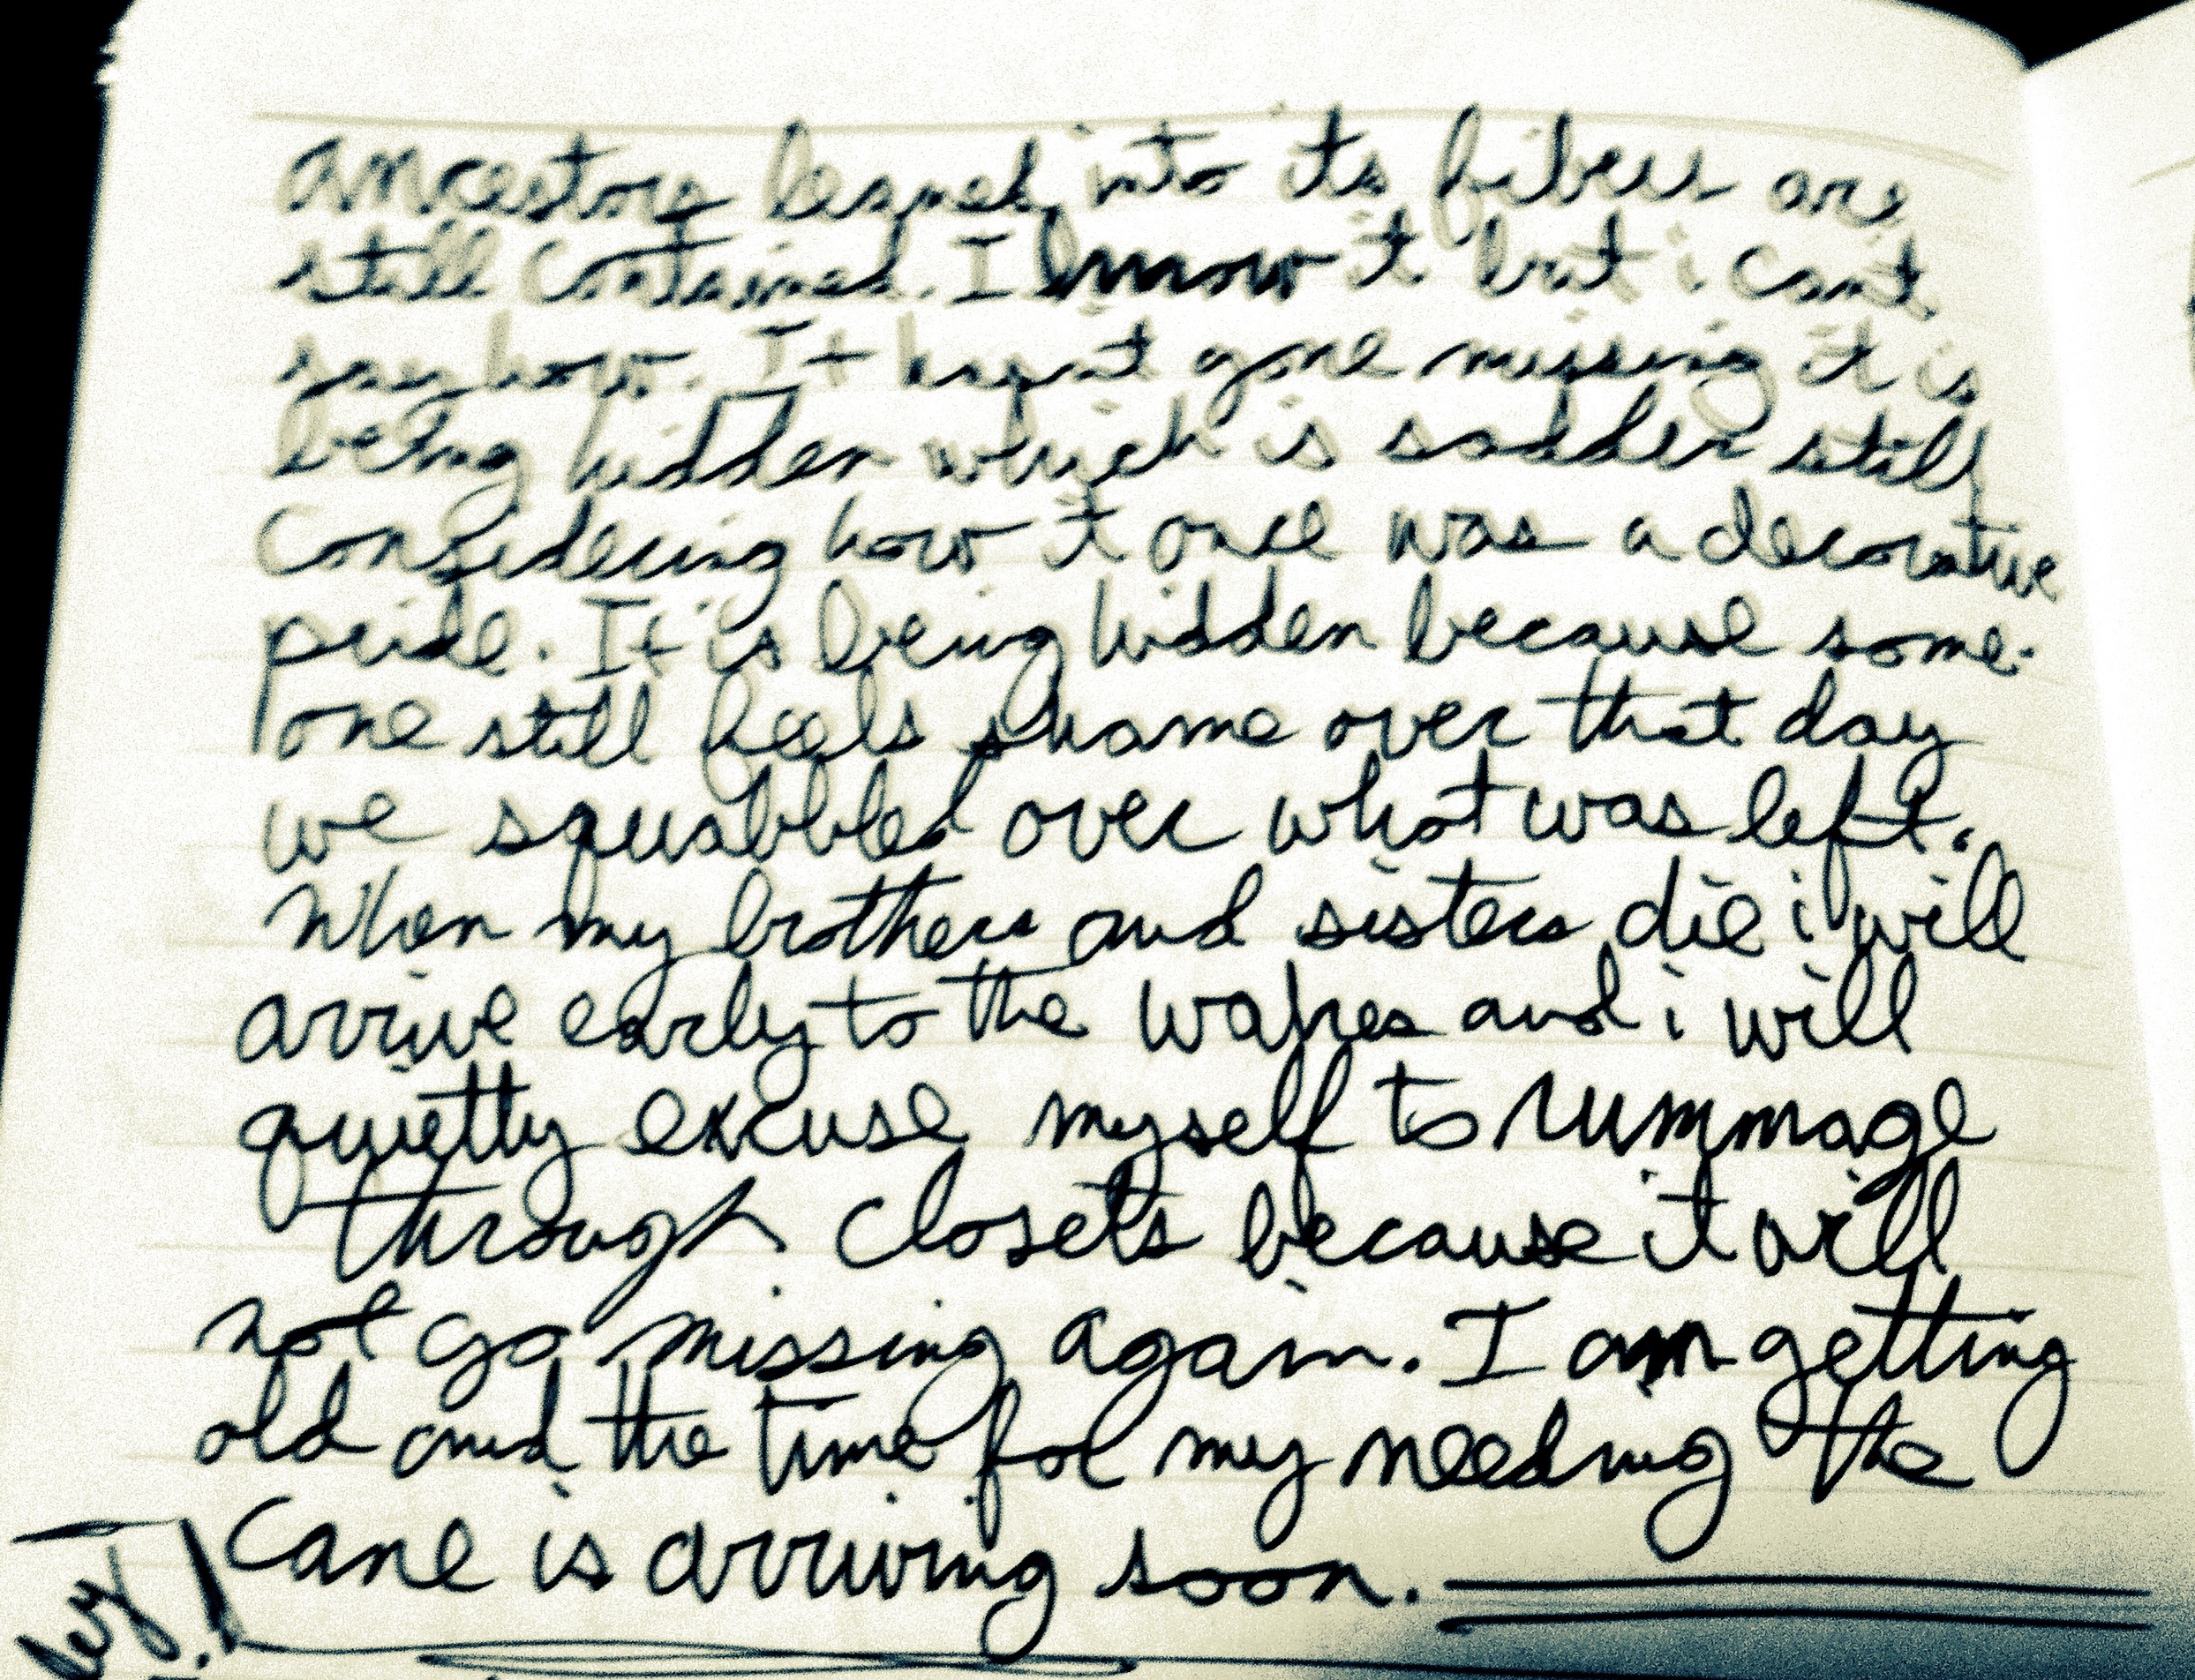 ancestors leaned into its fibers are
still contained. I know it but i cant
say how. It hasnt gone missing it is
being hidden which is sadder still
considering how it once was a decorative
pride. It is being hidden because some-
one still feels shame over that day
we squabbled over what was left.
When my brothers and sisters die i will
arrive early to the wakes and i will
quietly excuse myself to rummage
through closets because it will
not go missing again. I am getting
old and the time for my needing the
cane is arriving soon.